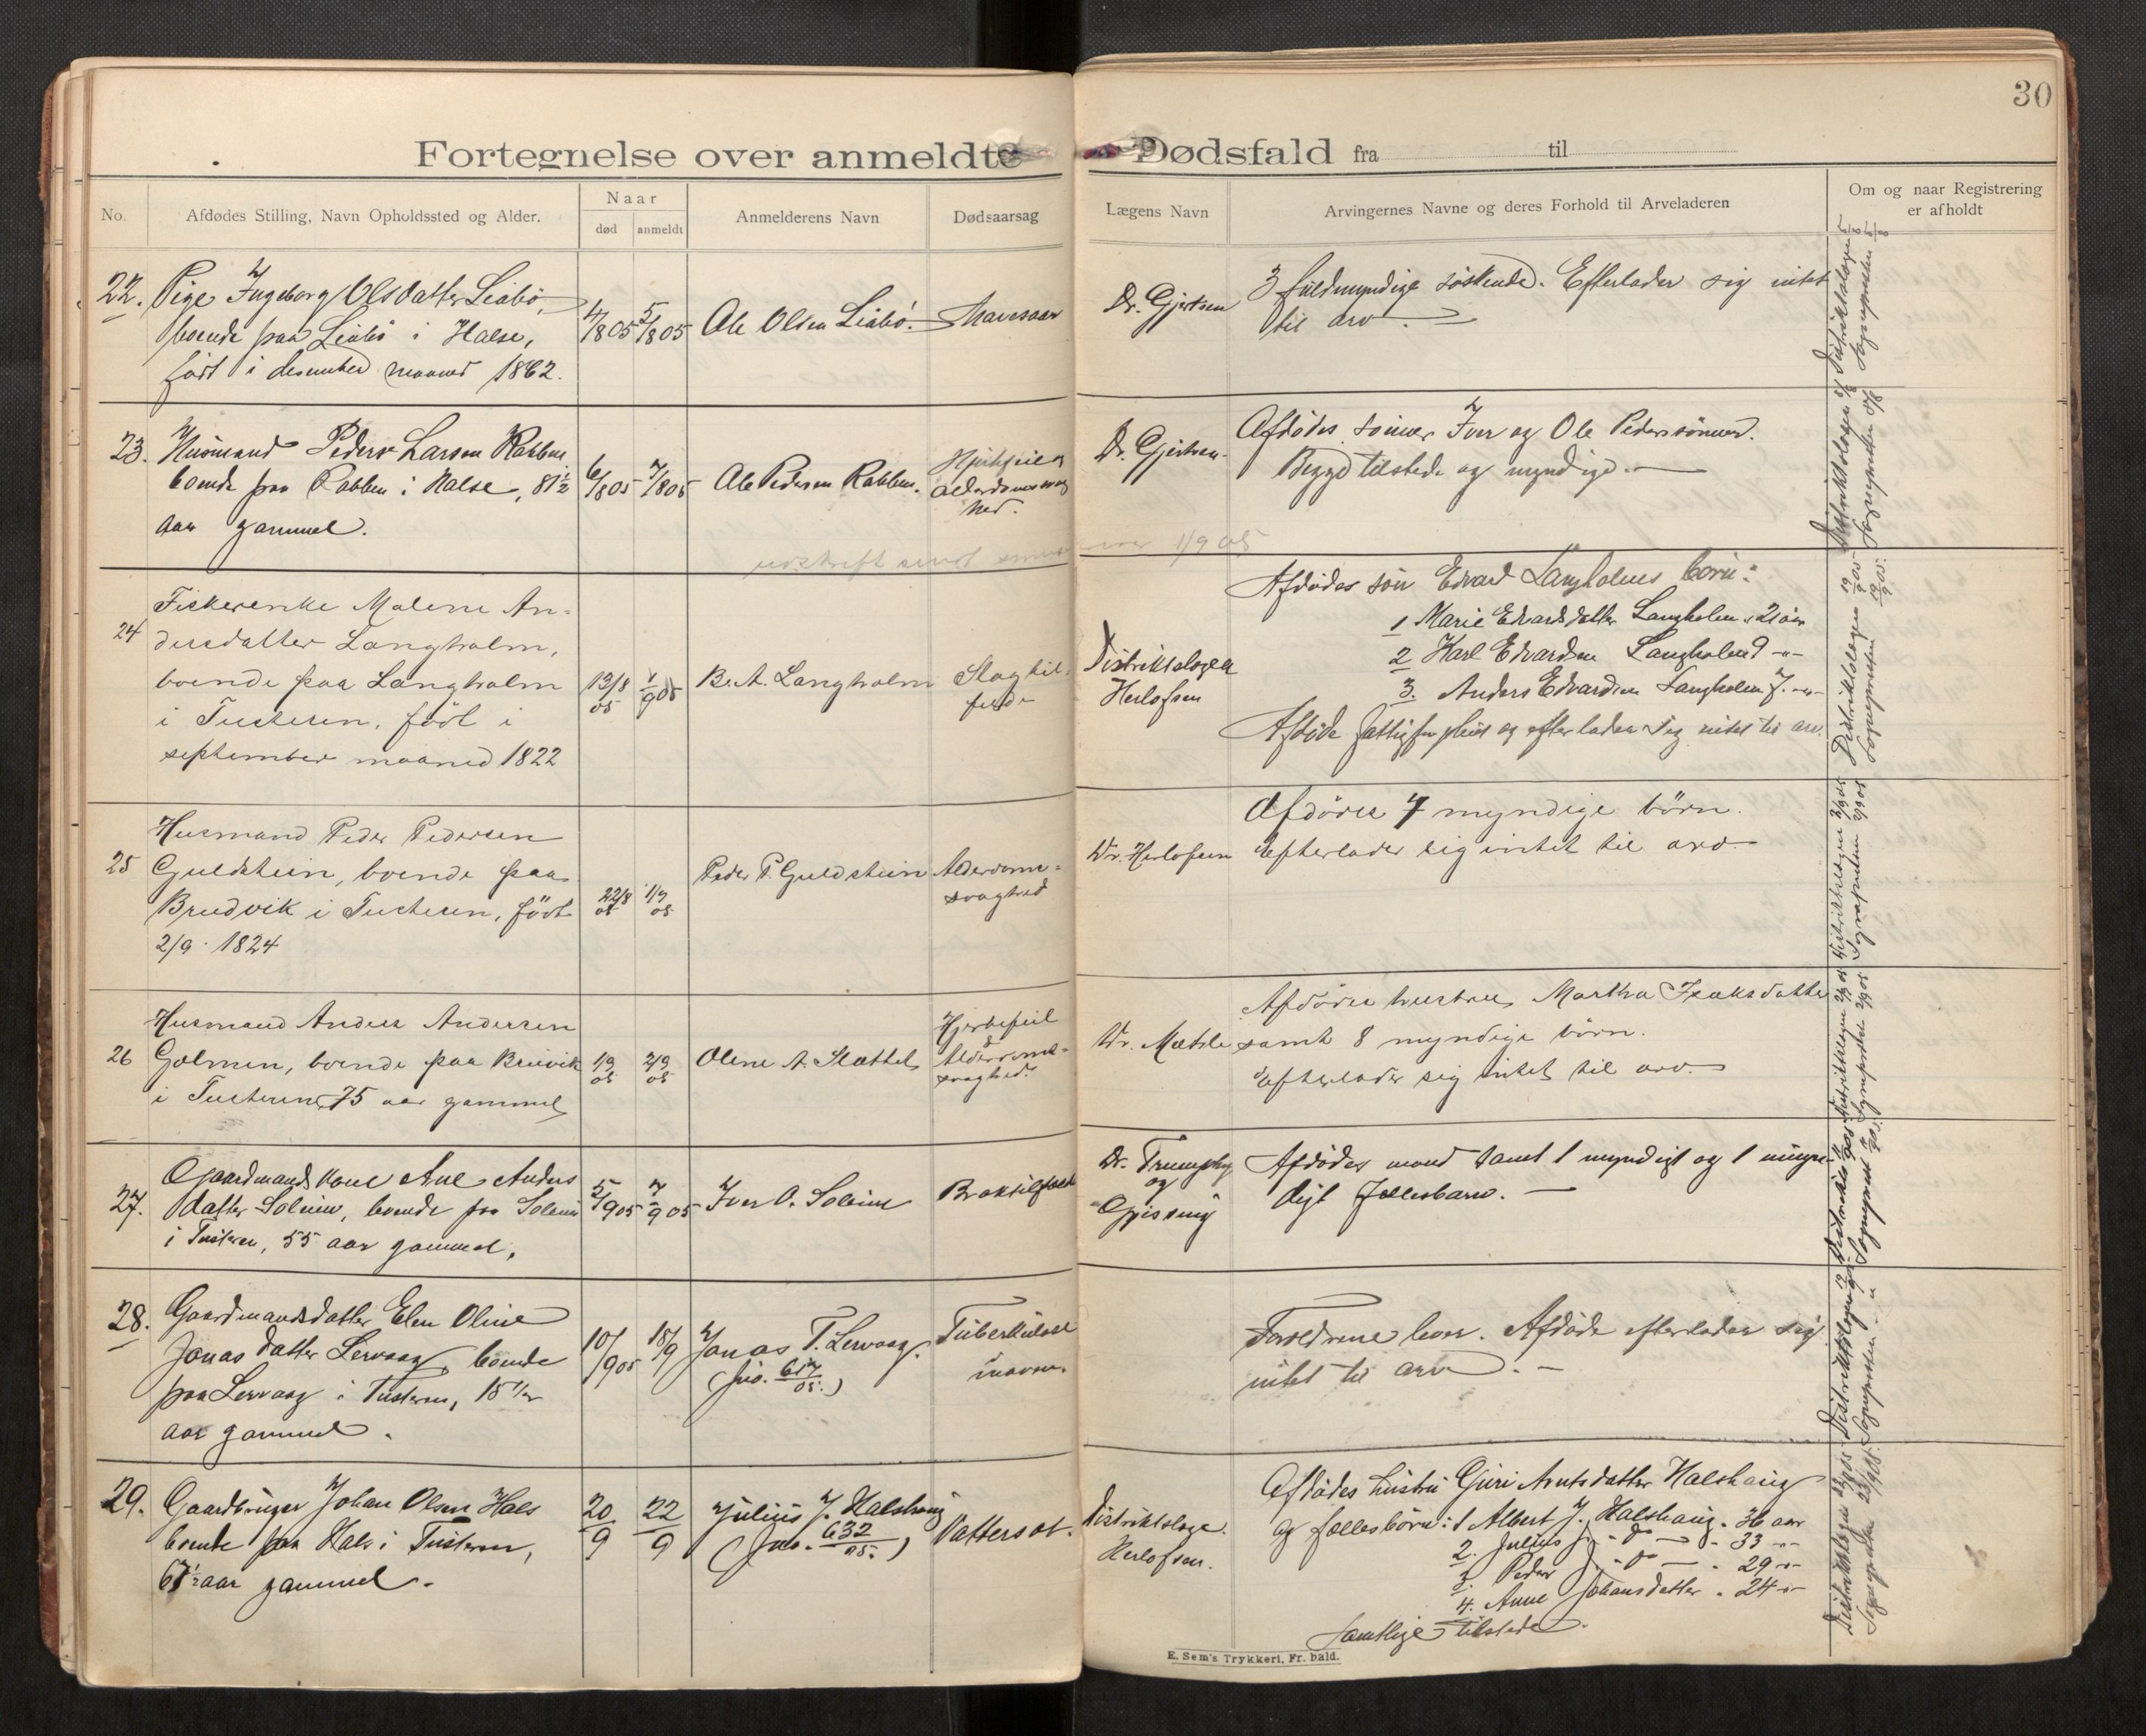 30
Fortegnelse over anmeldte Dødsfald fra til
No.
Afdødes Stilling, Navn Opholdssted og Alder.
Naar
død
anmeldt
Anmelderens Navn
Dødsaarsag
Lægens Navn
Arvingernes Navne og deres Forhold til Arveladeren
Om og naar Registrering
er afholdt
22. Pige Ingeborg Olsdatter Liabö,
boende paa Liabö i Halse,
født i desember maaned 1862.
4/8 05
5/8 05
Ole Olsen Liabö.
Mavesaar
Dr. Gjertsen
3 fuldmyndige søskende. Efterlader sig intet
til arv.
23. Husmand Peder Larsen Rabben
boende paa Rabben i Halse, 81½
aar gammel.
6/8 05
7/8 05
Ole Pedersen Rabben.
Hjertefeil og
alderdomssvag
hed.
Dr. Gjertsen.
Afdødes sönner Iver og Ole Pederssönner.
Begge tilstede og myndige.
udskrift sendt 1/9 05
24 Fiskerenke Malene An-
dersdatter Langholm,
boende paa Langholm
i Tusteren, född i
september maaned 1822
13/8 05
1/9 05
B. A. Langholm
Slagtil-
fælde
Distriktslægen
Herlofsen
Afdødes sön Edvard Langholms börn:
1 Marie Edvardsdatter Langholm, 21 aar
2 Karl Edvardsen Langholm 9 -"-
3. Anders Edvardsen Langholm 7. -"-
Afdøde fattigforpleiet og efterlader sig intet til arv.
25 Husmand Peder Pedersen
Guldstein, boende paa
Brudvik i Tusteren, född
2/9 1824
22/8 05
1/9 05
Peder P. Guldstein
Alderdoms-
svaghed
Dr. Herlofsen
Afdødes 7 myndige börn.
Efterlader sig intet til arv.
26 Husmand Anders Andersen
Golmen, boende paa Breivik
i Tusteren, 75 aar gammel
1/9 05
2/9 05
Olene A. Slettet
Hjertefeil
&
Alderdoms-
svaghed.
Dr. Mætzle
Afdødes hustru Martha Isaksdatter
samt 8 myndige börn.
Efterlader sig intet til arv.
27. Gaardmandskone Ane Anders
datter Soleim, boende paa Soleim
i Tusteren, 55 aar gammel.
5/9 05
7/9 05
Iver O. Soleim
Braktilfælde
Dr.
og
Gjissing
Afdødes mand samt 1 myndigt og 1 umyn-
digt fællesbarn.
28. Gaardmandsdatter Elen Oline
Jonasdatter Lervaag, boende
paa Lervaag i Tusteren, 15
aar gammel.
10/9 05
15/9
Jonas T. Lervaag.
(Jno. 617/05.)
Tuberkulose
i maven.
Forældrene lever. Afdøde efterlader sig
intet til arv.
29. Gaardbruger Johan Olsen Hals
boende paa Hals i Tusteren,
67½ aar gammel.
20/9
22/9
Julius J. Halshaug
(Jno. 632/05.)
Vattersot.
Distriktslæge.
Herlofsen.
Afdødes hustru Guri Arntsdatter Halshaug
og fællesbörn: 1 Albert J. Halshaug. 36 aar
2. Julius J. -do- - 33 -"-
3. Peder J. -do- - 29 -"-
4. Anne Johansdatter - 24 -"-
Samtlige tilstede.
E. Sem's Trykkeri, Fr. hald.